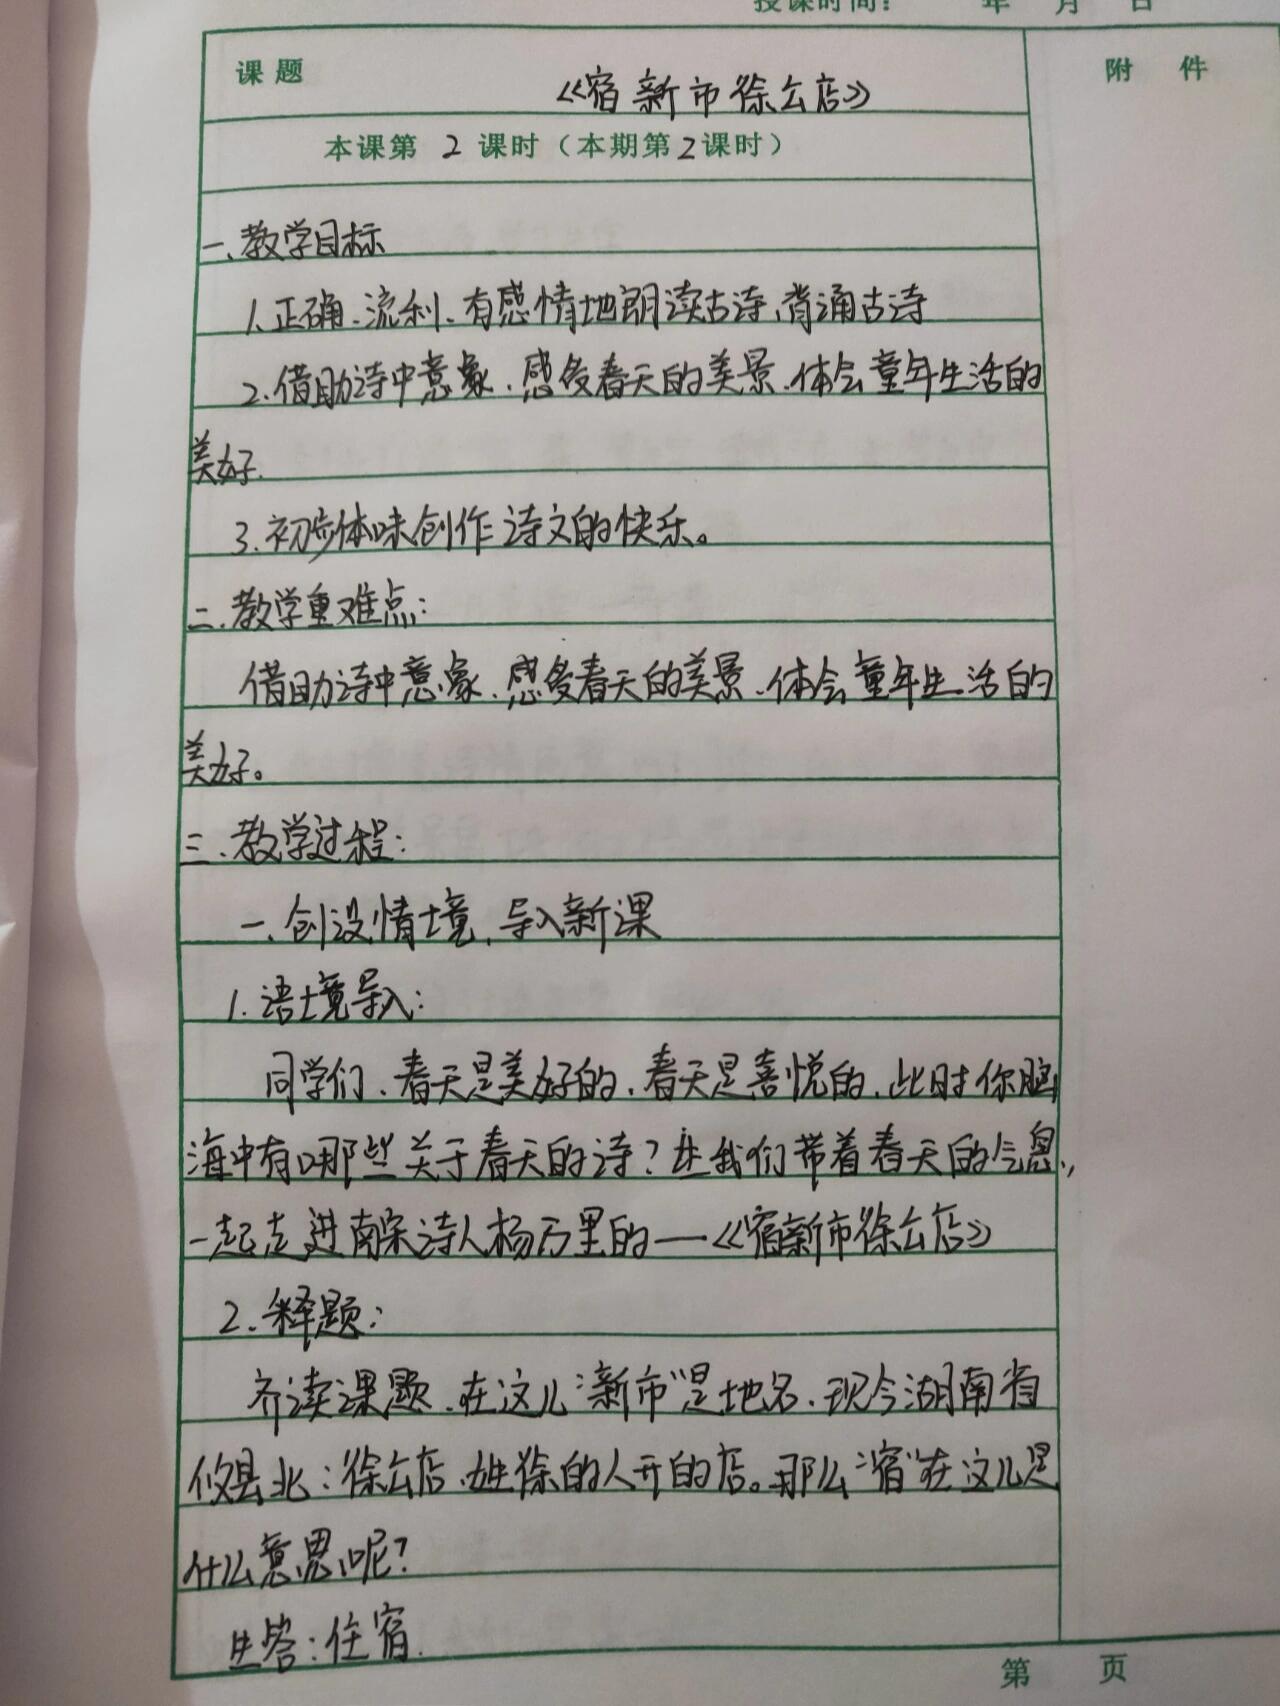 授课时间： 年 月 日
课题 《宿新市徐公店》 附 件
本课第 2 课时（本期第 2 课时）
一、教学目标
1、正确、流利、有感情地朗读古诗、背诵古诗
2、借助诗中意象、感受春天的美景、体会童年生活的
美好.
3、初步体味创作诗文的快乐。
二、教学重难点：
借助诗中意象、感受春天的美景、体会童年生活的
美好。
三、教学过程：
一、创设情境、导入新课
1、语境导入：
同学们、春天是美好的、春天是喜悦的、此时你脑
海中有哪些关于春天的诗？让我们带着春天的气息，
一起走进南宋诗人杨万里的—《宿新市徐公店》
2、释题：
齐读课题、在这儿“新市”是地名、现今湖南省
攸县北；徐公店、姓徐的人开的店。那么“宿”在这儿是
什么意思呢？
生答：住宿.
第 页